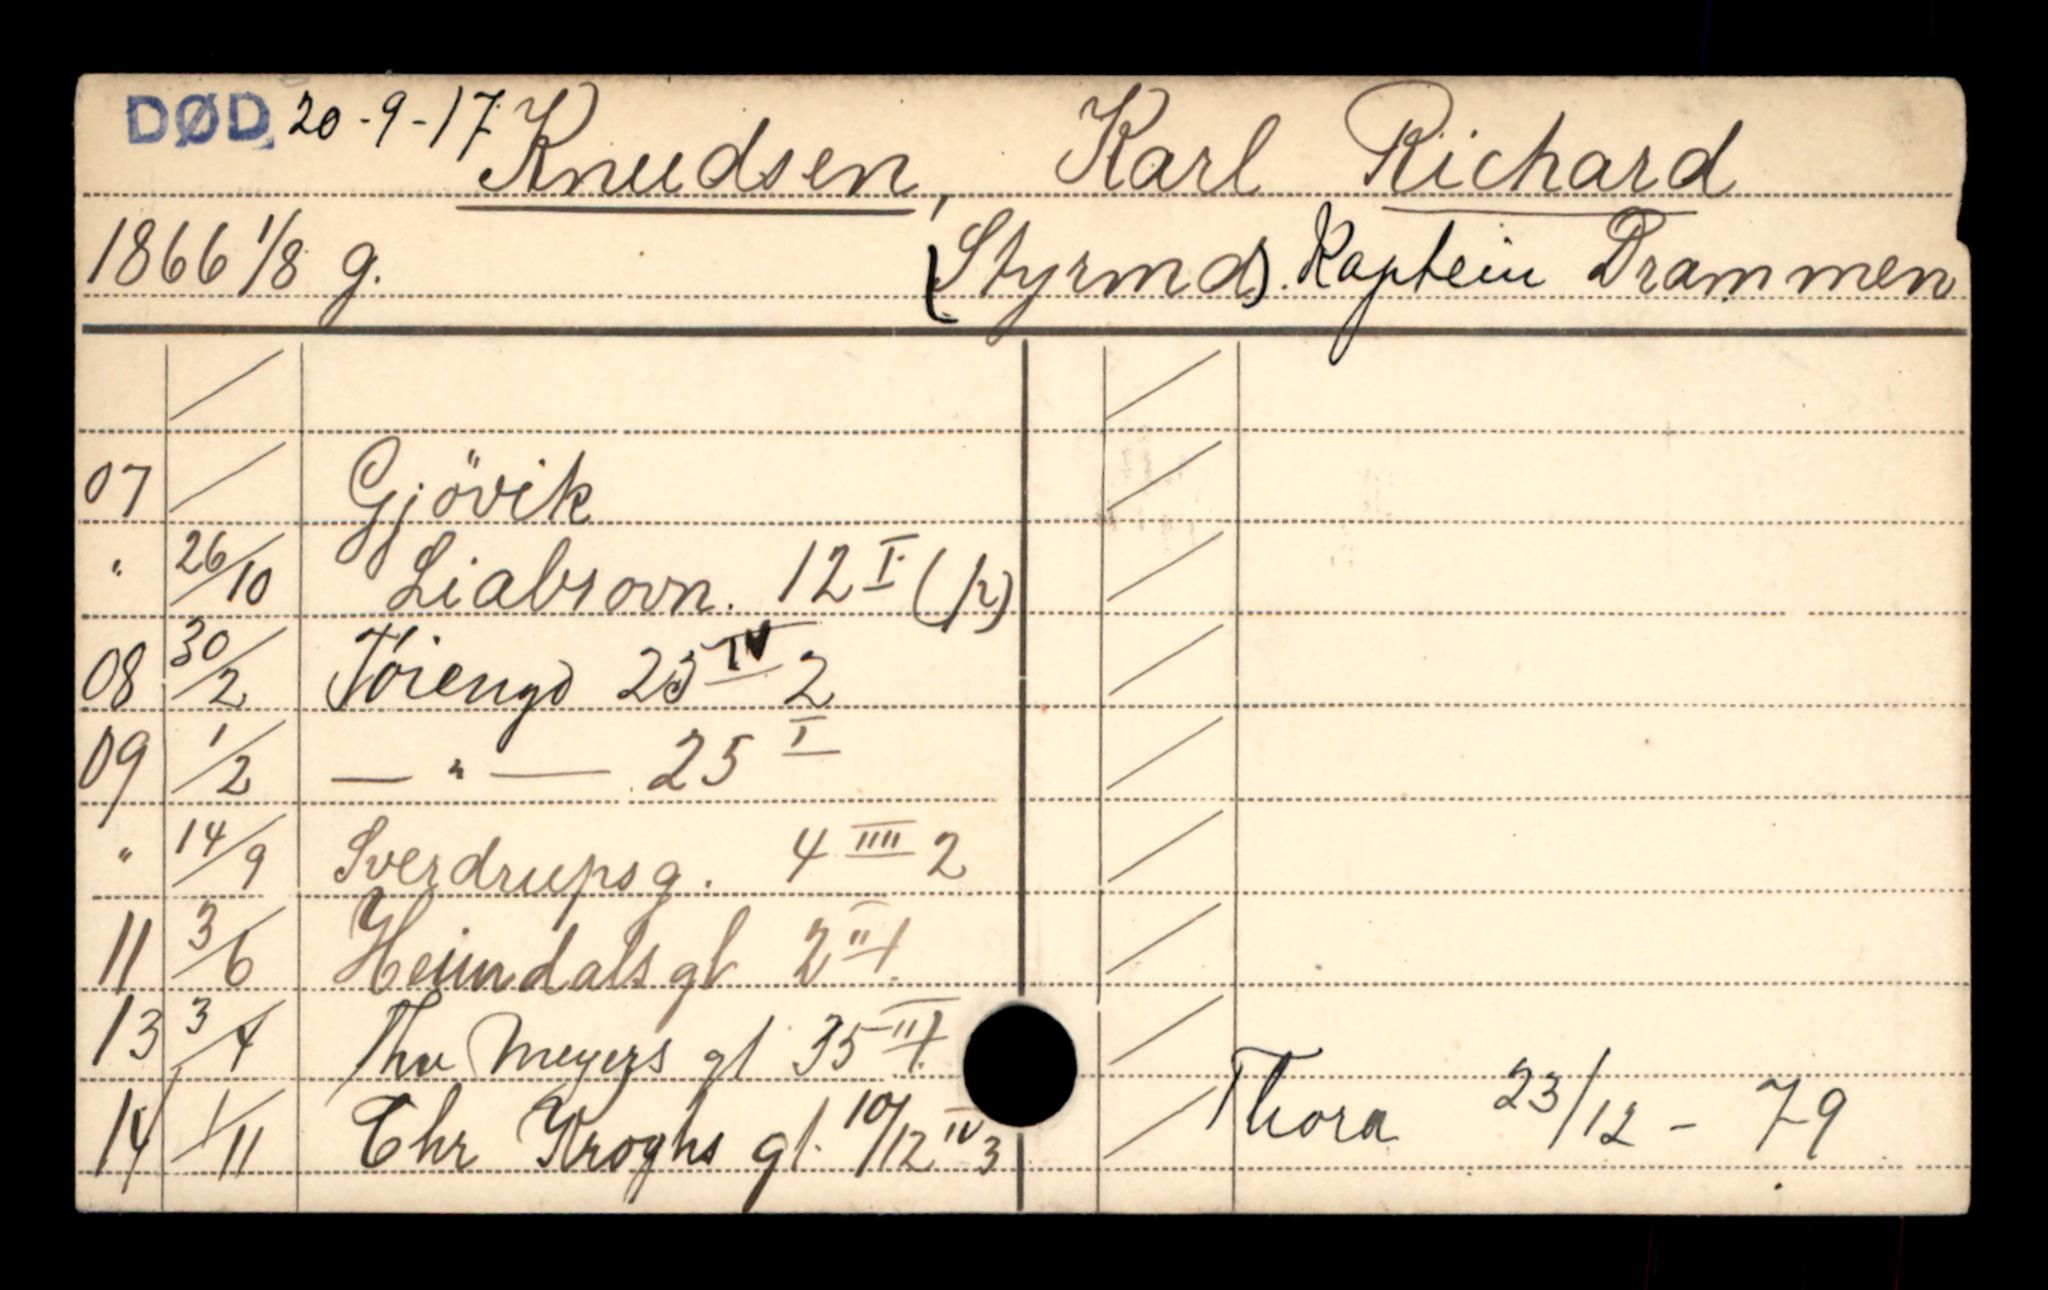 DØD 20-9-17 Knudsen, Karl Richard
1866 1/8 g. (Styrmd). Kaptein Drammen
07 / Gjövik
" 26/10 Liabrovn. 12 I (p)
08 30/2 Töiengd 25 IV 2
09 1/2 — " — 25 I
" 14/9 Sverdrupsg. 4 IIII 2
11 3/6 Heimdalsgt 2 II 1.
13 3/4 Thv Meyers gt 35 II 1.
14 1/11 Chr Kroghs gt. 10/12 IV 3
Thora 23/12 - 79